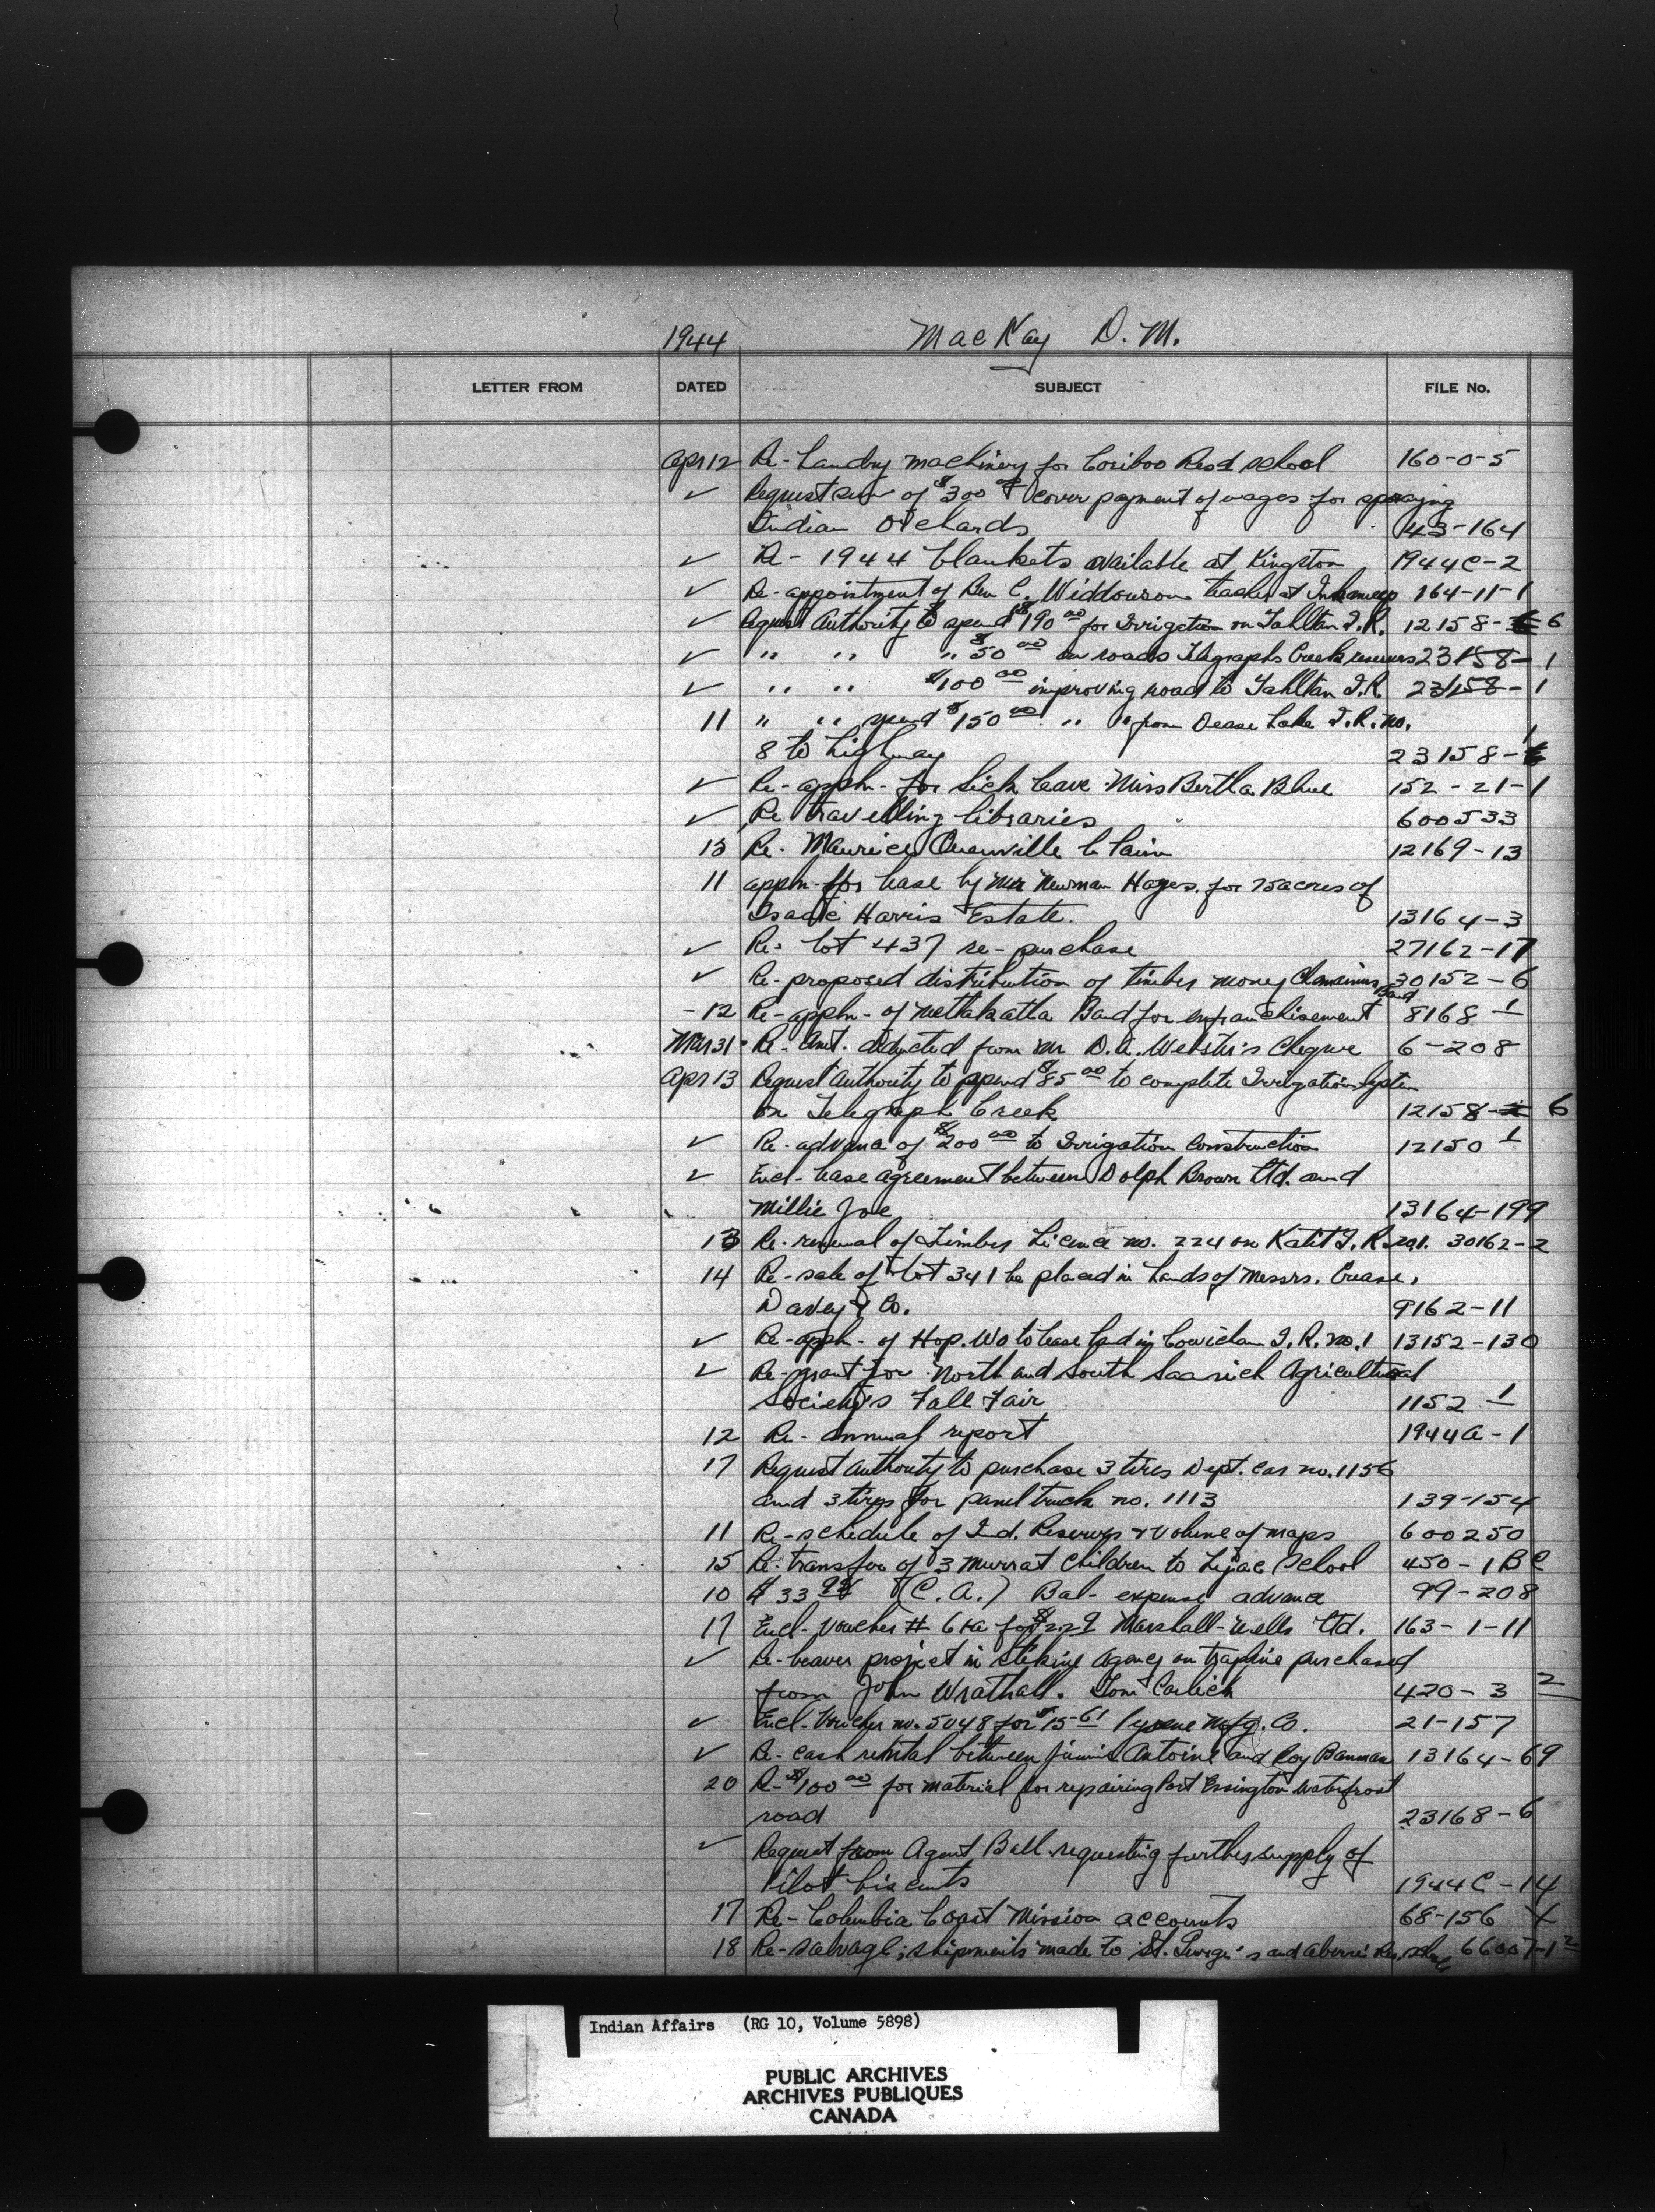 1944 MacKay D. M.
LETTER FROM DATED SUBJECT FILE No.
Apr 12 Re - Laundry machinery for Cariboo Resd School 160-0-5
✓ Request sum of $300 00 to cover payment of wages for spraying
Indian Orchards 43-164
✓ Re - 1944 blankets available at Kingston 1944C-2
✓ Re - appointment of Rev C. Widdowson teacher at Inkameep 164-11-1
✓ Request Authority to spend $190 00 for Irrigation on Tahltan I.R. 12158- 6
✓ " " " $50 00 on roads Telegraph Creek reserves 23158-1
✓ " " $100 00 improving road to Tahltan I.R. 23158-1
11 " " spend $150 00 " " from Dease Lake I.R. no.
8 to highway 23158- 1
✓ Re - appln - for Sick leave Miss Bertha Blue 152-21-1
✓ Re travelling libraries 600533
13 Re - Maurice Quenville Claim 12169-13
11 appln - for lease by Mr Newman Hayes. for 75 acres of
Isaac Harris Estate. 13164-3
✓ Re - Lot 437 re-purchase 27162-17
✓ Re - proposed distribution of timber money Chemainus Band 30152-6
- 12 Re - appln - of Metlakatla Band for enfranchisement 8168-1
Mar 31 - Re - Amt. deducted from Mr D.A. Webster's Cheque 6-208
Apr 13 Request Authority to spend $85 00 to complete Irrigation System
on Telegraph Creek 12158- 6
✓ Re - advance of $200 00 to Irrigation Construction 12150 1
✓ Encl - Lease agreement between Dolph Brown Ltd. and
Millie Joe 13164-199
13 Re - renewal of Timber Licence no. 224 on Katit I.R. no.1. 30162-2
14 Re - sale of Lot 341 be placed in hands of Messrs. Crease,
Davey & Co. 9162-11
✓ Re - appln - of Hop. Wo to lease land in Cowichan I.R. no.1 13152-130
✓ Re - grant for North and South Saanich Agricultural
Society's Fall Fair 1152-1
12 Re - annual report 1944A-1
17 Request authority to purchase 3 tires Dept. Car no. 1156
and 3 tires for panel truck no. 1113 139-154
11 Re - schedule of Ind. Reserves & volume of maps 600250
15 Re - transfer of 3 Murrat Children to Lejac School 450-1 BC
10 $33 (C.A.) Bal - expense advance 99-208
17 Encl - Voucher # for Marshall-Wells Ltd. 163-1-11
✓ Re - beaver project in Stikine Agency on trapline purchased
from John Wrathall. Tom Carlick 420-3 2
✓ Encl - Voucher no. 5048 for $15-61 Mfg. Co. 21-157
✓ Re - cash rental between Jimmie Antoine and Roy Banman 13164-69
20 Re - $100 00 for material for repairing Port Essington Waterfront
road 23168-6
✓ Request from Agent Ball requesting further supply of
Pilot biscuits 1944C-14
17 Re - Columbia Coast Mission accounts 68-156 X
18 Re - salvage; shipments made to St. George's and Alberni Res. Schools 66007-1 2
Indian Affairs (RG 10, Volume 5898)
PUBLIC ARCHIVES
ARCHIVES PUBLIQUES
CANADA